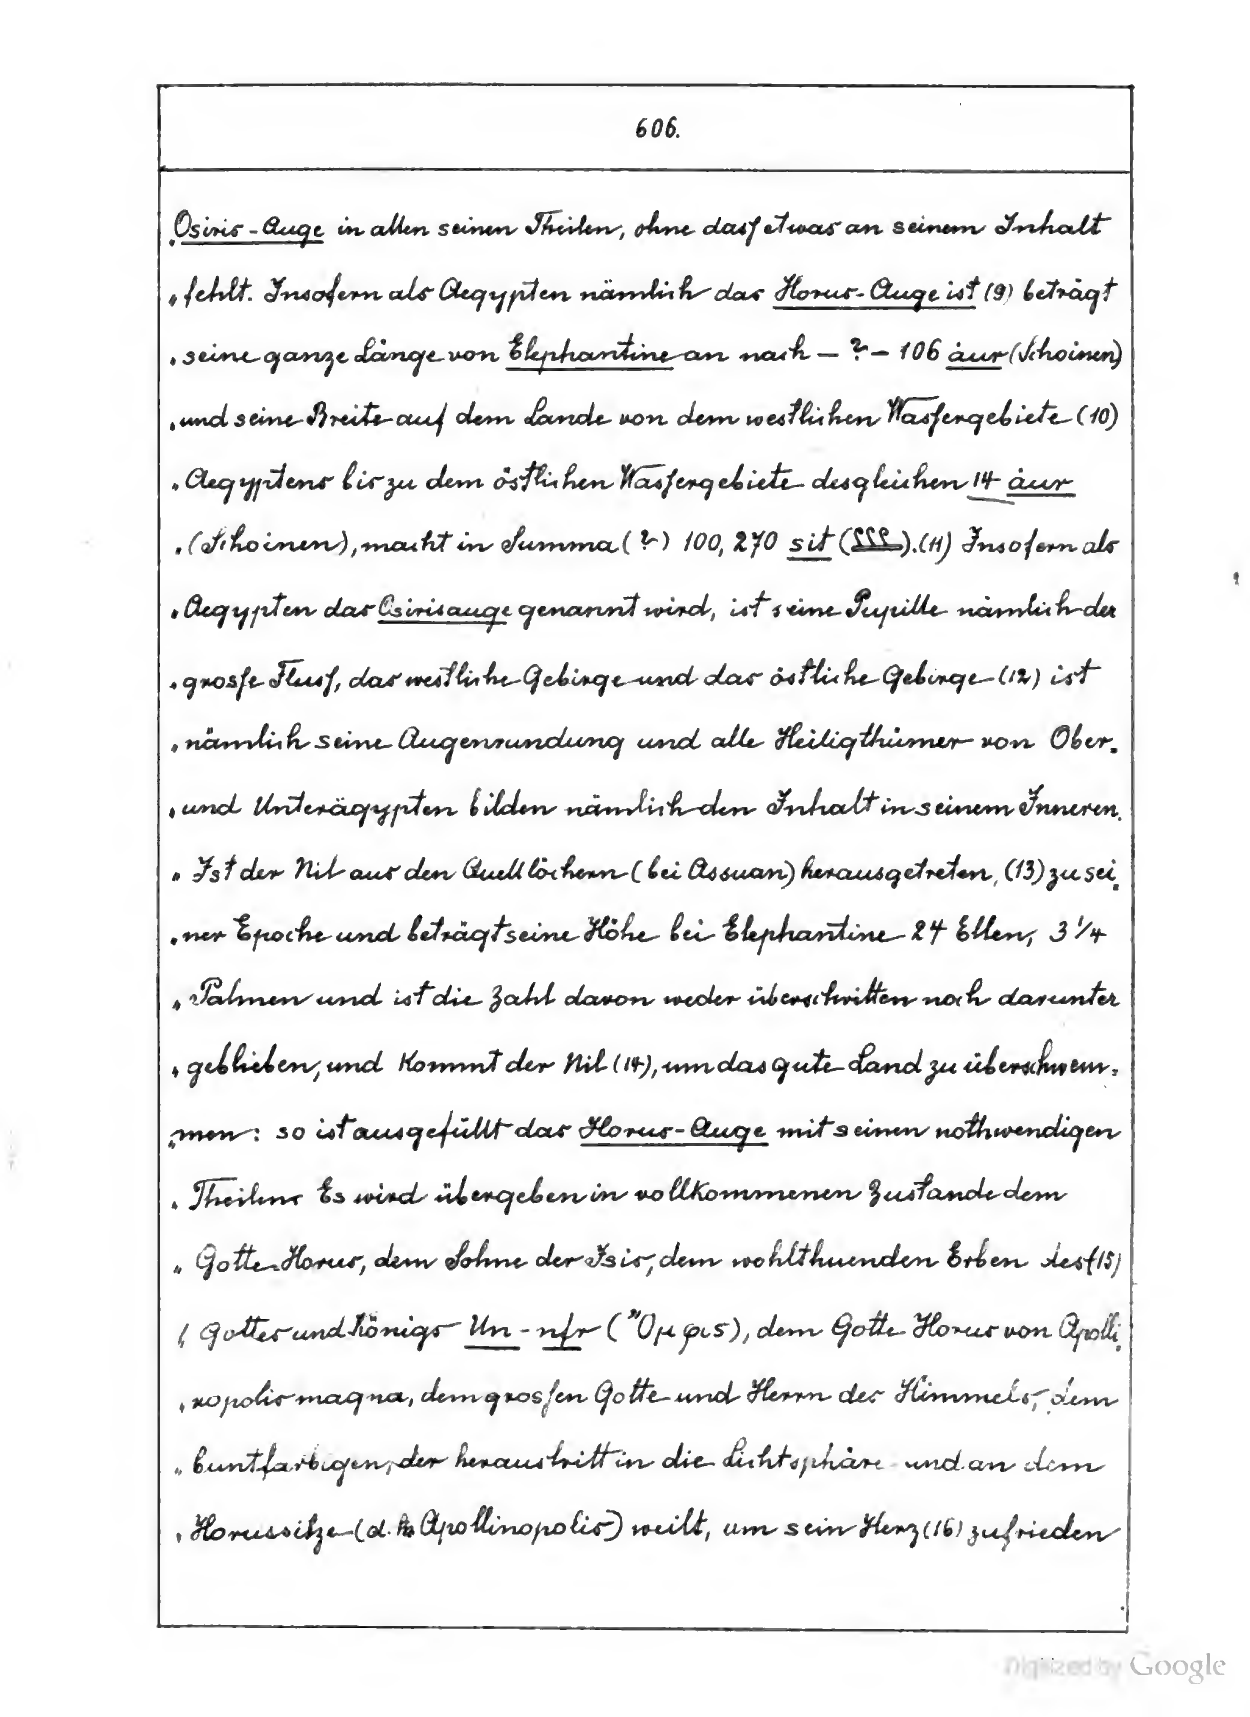 606.
„Osiris-Auge in allen seinen Theilen, ohne dasſ etwas an seinem Inhalt
„fehlt. Insofern als Aegypten nämlich das Horus-Auge ist (9) beträgt
„seine ganze Länge von Elephantine an nach – ? – 106 àur (Schoinen)
„und seine Breite auf dem Lande von dem westlichen Wasſergebiete (10)
„Aegyptens bis zu dem östlichen Wasſergebiete desgleichen 14 àur
„(Schoinen), macht in Summa (?) 100,270 sit (). (11) Insofern als
„Aegypten das Osirisauge genannt wird, ist seine Pupille nämlich der
„grosſe Flusſ, das westliche Gebirge und das östliche Gebirge (12) ist
„nämlich seine Augenrundung und alle Heiligthümer von Ober-
„und Unterägypten bilden nämlich den Inhalt in seinem Inneren.
„Ist der Nil aus den Quelllöchern (bei Assuan) herausgetreten, (13) zu sei-
„ner Epoche und beträgt seine Höhe bei Elephantine 24 Ellen, 3 1/4
„Palmen und ist die Zahl davon weder überschritten noch darunter
„geblieben, und kommt der Nil (14), um das gute Land zu überschwem-
„men: so ist ausgefüllt das Horus-Auge mit seinen nothwendigen
„Theilen. Es wird übergeben in vollkommenen Zustande dem
„Gotte Horus, dem Sohne der Isis, dem wohlthuenden Erben des (15)
„Gottes und Königs Un-nfr (Ὄμφις), dem Gotte Horus von Apolli-
„nopolis magna, dem grosſen Gotte und Herrn des Himmels, dem
„buntfarbigen, der heraustritt in die Lichtsphäre und an dem
„Horussitze (d. h. Apollinopolis) weilt, um sein Herz (16) zufrieden
Digitized by Google